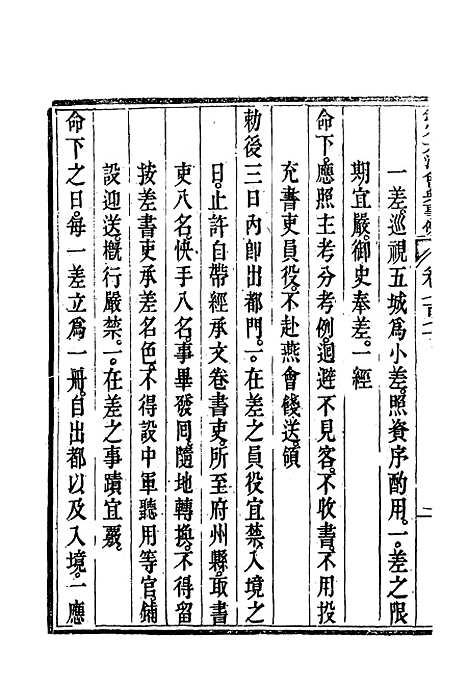 一差。巡視五城為小差。照資序酌用。一。差之限
期宜嚴。御史奉差。一經
命下。應照主考分考例。迴避不見客。不收書。不用投
充書吏員役。不赴燕會餞送。領
勅後三日內卽出都門。一。在差之員役宜禁。入境之
日。止許自帶經承文卷書吏。所至府州縣。取書
吏八名快手八名。事畢發囘。隨地轉換。不得留
按差書吏承差名色。不得設中軍聽用等官。鋪
設迎送。槪行嚴禁。一。在差之事蹟宜覈。
命下之日。每一差立為一冊。自出都以及入境。一應